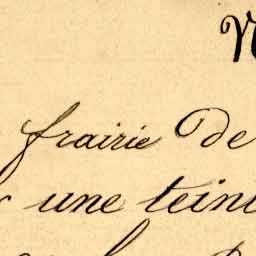 frairie de
une tein